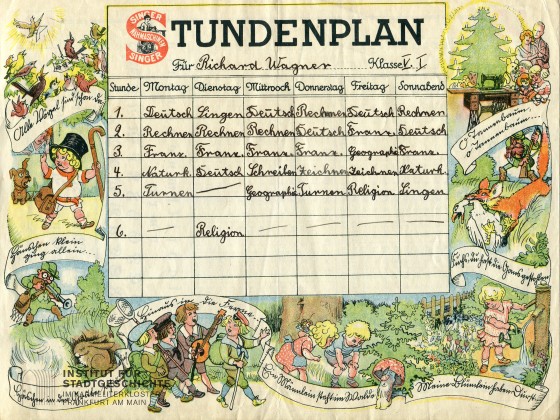 SINGER
NÄHMASCHINEN
SINGER
STUNDENPLAN
Für Richard Wagner Klasse V. I
Stunde Montag Dienstag Mittwoch Donnerstag Freitag Sonnabend
1. Deutsch Singen Deutsch Rechnen Deutsch Rechnen
2. Rechnen Rechnen Rechnen Deutsch Franz. Deutsch
3. Franz. Franz. Franz. Franz. Geographie Franz.
4. Naturk. Deutsch Schreiben Zeichnen Zeichnen Naturk.
5. Turnen — Geographie Turnen Religion Singen
6. — Religion — — — —
Alle Vögel sind schon da
O Tannenbaum,
o Tannenbaum...
Hänschen klein
ging allein...
Fuchs, du hast die Gans gestohlen
Hinaus in die Ferne
Häschen in der
Ein Männlein steht im Walde
Meine Blümlein haben Durst
INSTITUT FÜR
STADTGESCHICHTE
IM KARMELITERKLOSTER
FRANKFURT AM MAIN